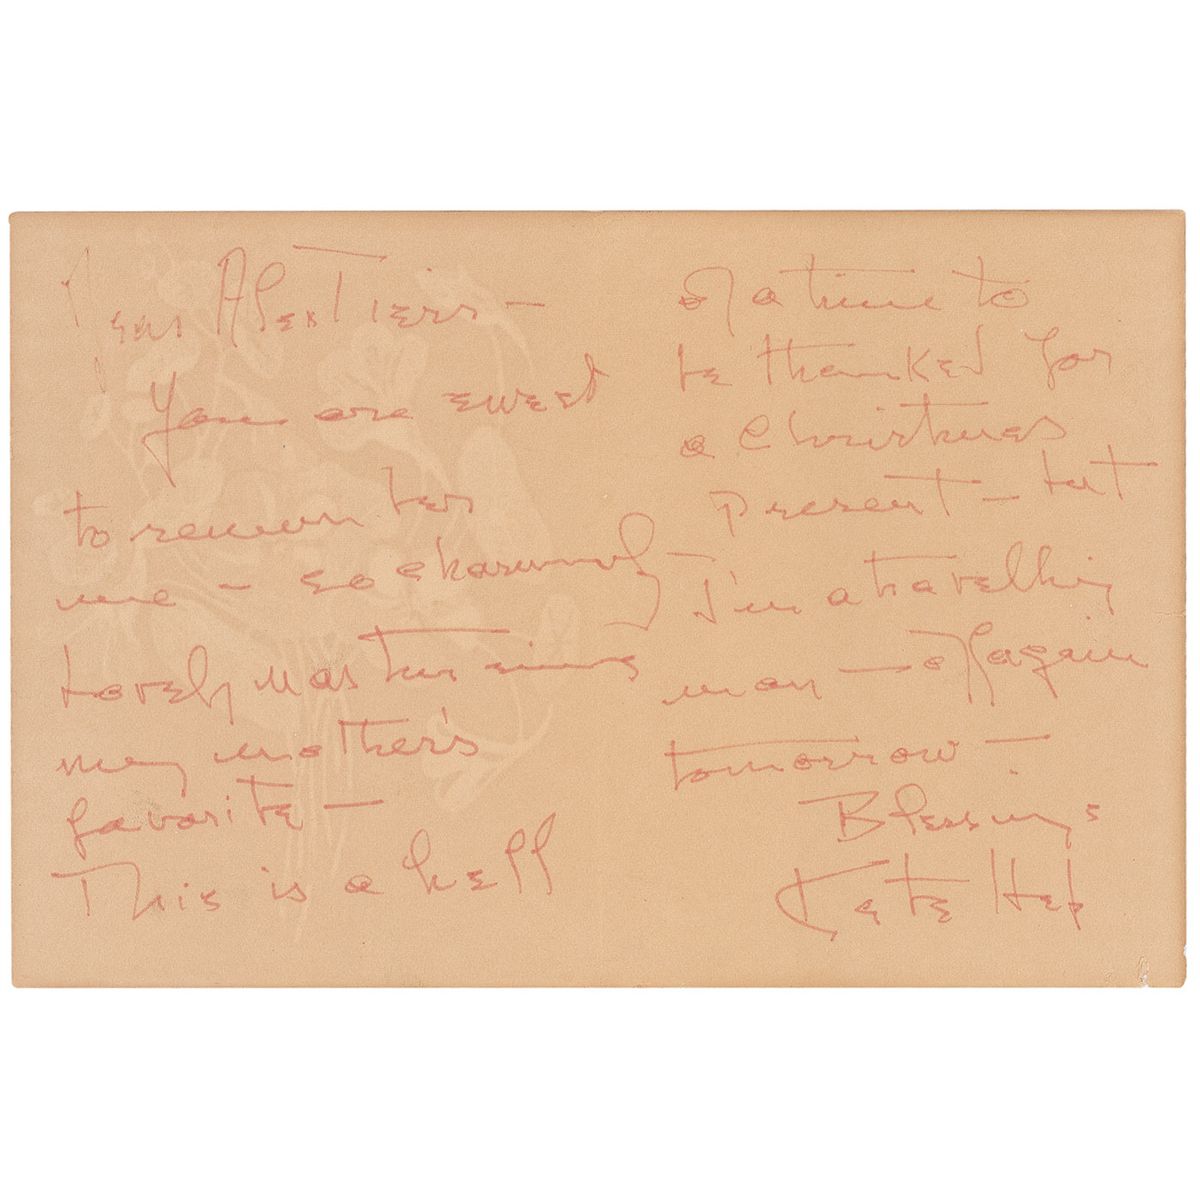 Dear Alex Tiers –
You are sweet
to remember
me – so charmingly –
Lovely nasturtiums
my mother's
favorite –
This is a hell
of a time to
be thanked for
a Christmas
present – but
I'm a travelling
man – off again
tomorrow –
Blessings
Kate Hep